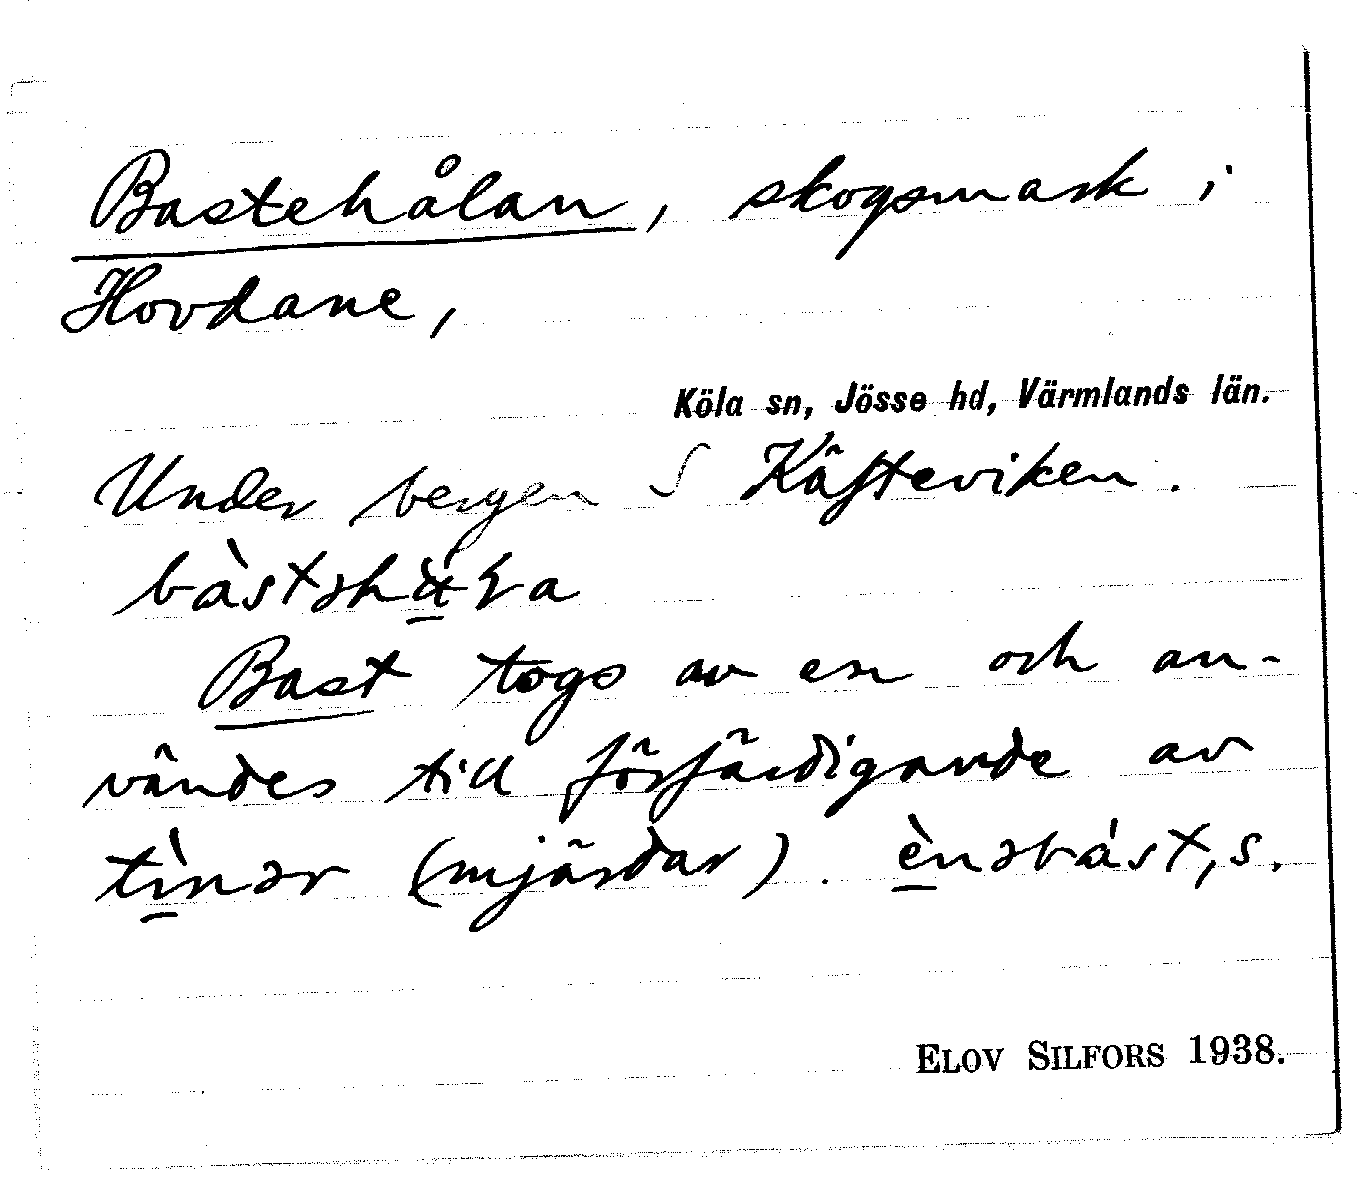 Bastehålan, skogsmark i
Hovdane,
Köla sn, Jösse hd, Värmlands län.
Under bergen S Käfteviken.
Bast togs av en och an-
vändes till förfärdigande av
tìnər (mjärdar). ènərbást, s.
ELOV SILFORS 1938.